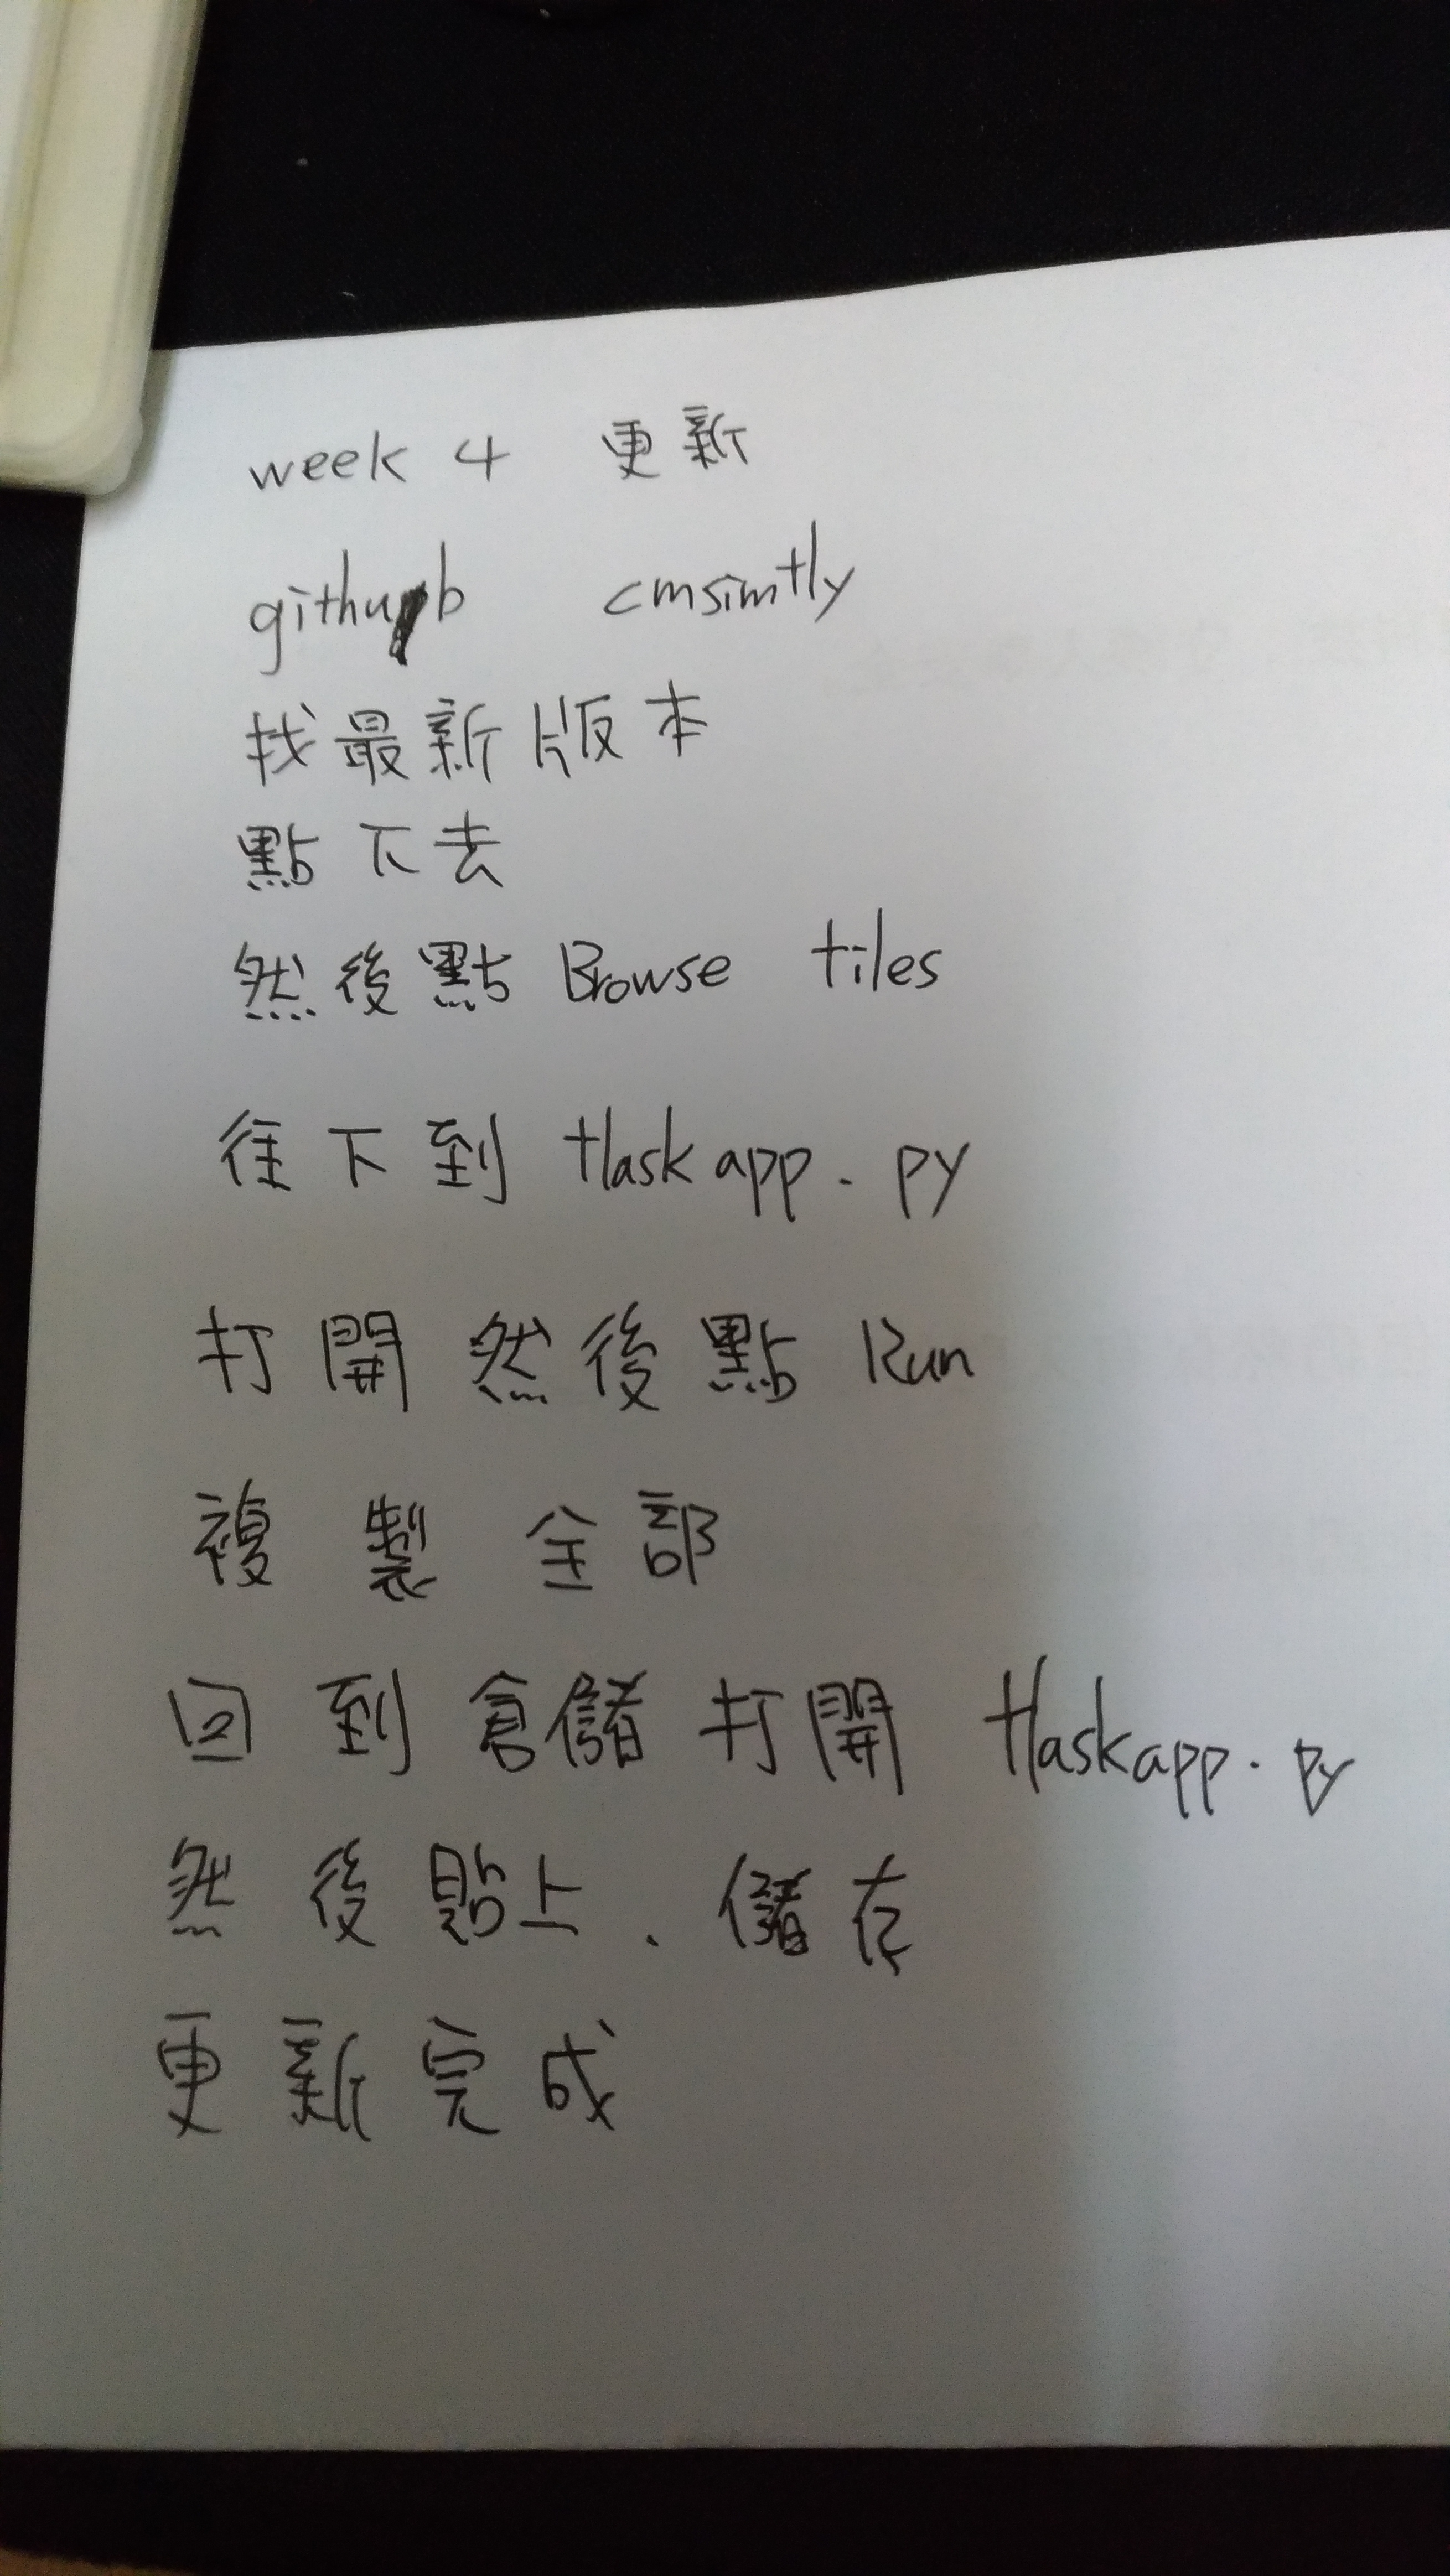 week 4 更新
github cmsimfly
找最新版本
點下去
然後點 Browse files
往下到 flaskapp.py
打開然後點 Run
複製全部
回到倉儲打開 flaskapp.py
然後貼上.儲存
更新完成